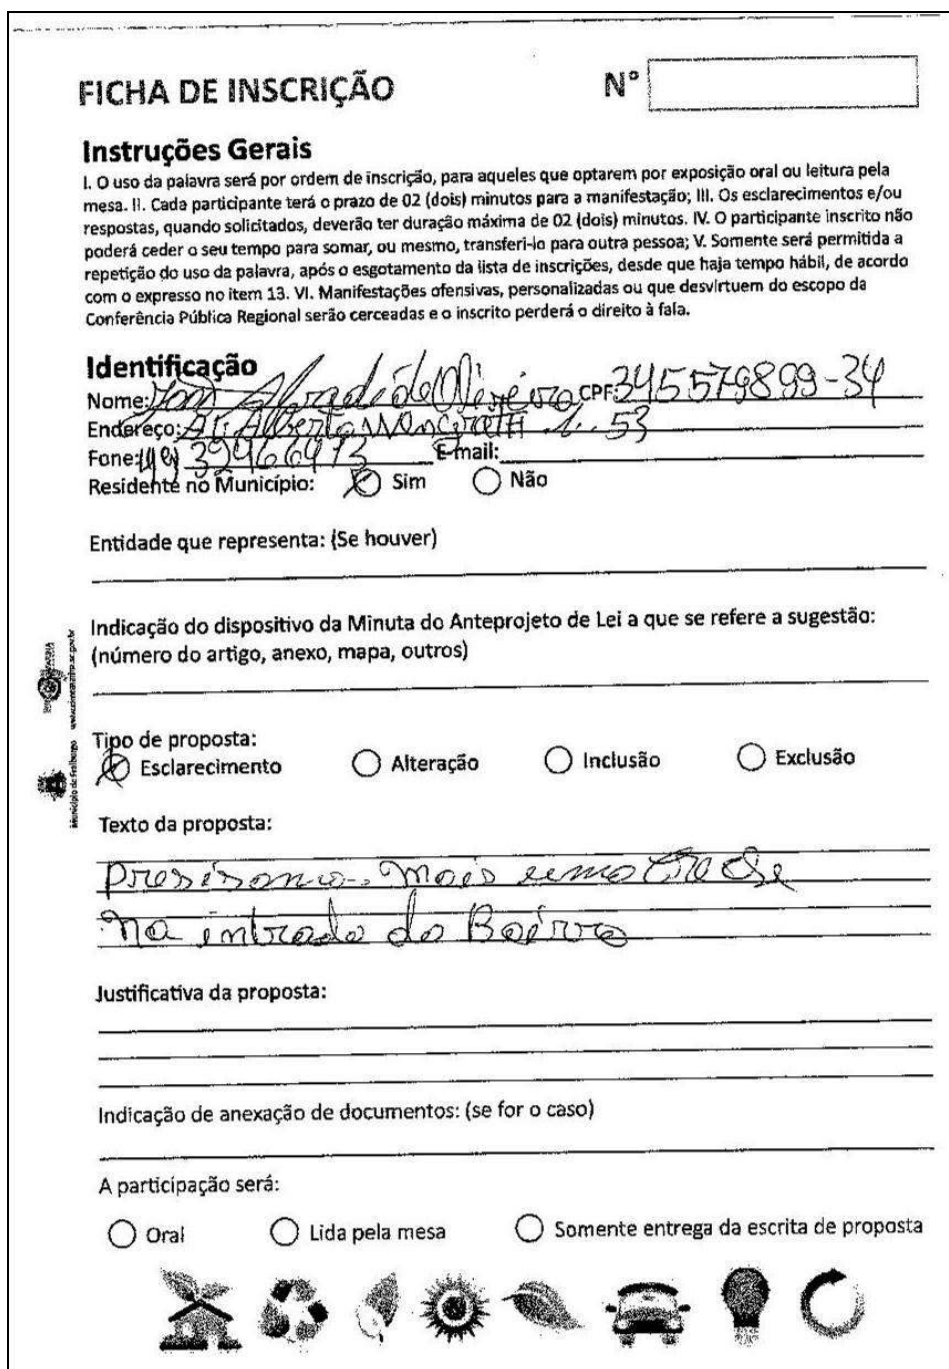 FICHA DE INSCRIÇÃO
N°
Instruções Gerais
I. O uso da palavra será por ordem de inscrição, para aqueles que optarem por exposição oral ou leitura pela
mesa. II. Cada participante terá o prazo de 02 (dois) minutos para a manifestação; III. Os esclarecimentos e/ou
respostas, quando solicitados, deverão ter duração máxima de 02 (dois) minutos. IV. O participante inscrito não
poderá ceder o seu tempo para somar, ou mesmo, transferi-lo para outra pessoa; V. Somente será permitida a
repetição do uso da palavra, após o esgotamento da lista de inscrições, desde que haja tempo hábil, de acordo
com o expresso no item 13. VI. Manifestações ofensivas, personalizadas ou que desvirtuem do escopo da
Conferência Pública Regional serão cerceadas e o inscrito perderá o direito à fala.
Identificação
Nome: de Oliveira CPF: 345579899-34
Endereço: Alberto 53
Fone: (49) 32466473 E-mail:
Residente no Município: Sim Não
Entidade que representa: (Se houver)
Indicação do dispositivo da Minuta do Anteprojeto de Lei a que se refere a sugestão:
(número do artigo, anexo, mapa, outros)
Município de Fraiburgo
Tipo de proposta:
Esclarecimento Alteração Inclusão Exclusão
Texto da proposta:
Presisamo mais uma Creche
na intrada do Bairro
Justificativa da proposta:
Indicação de anexação de documentos: (se for o caso)
A participação será:
Oral Lida pela mesa Somente entrega da escrita de proposta